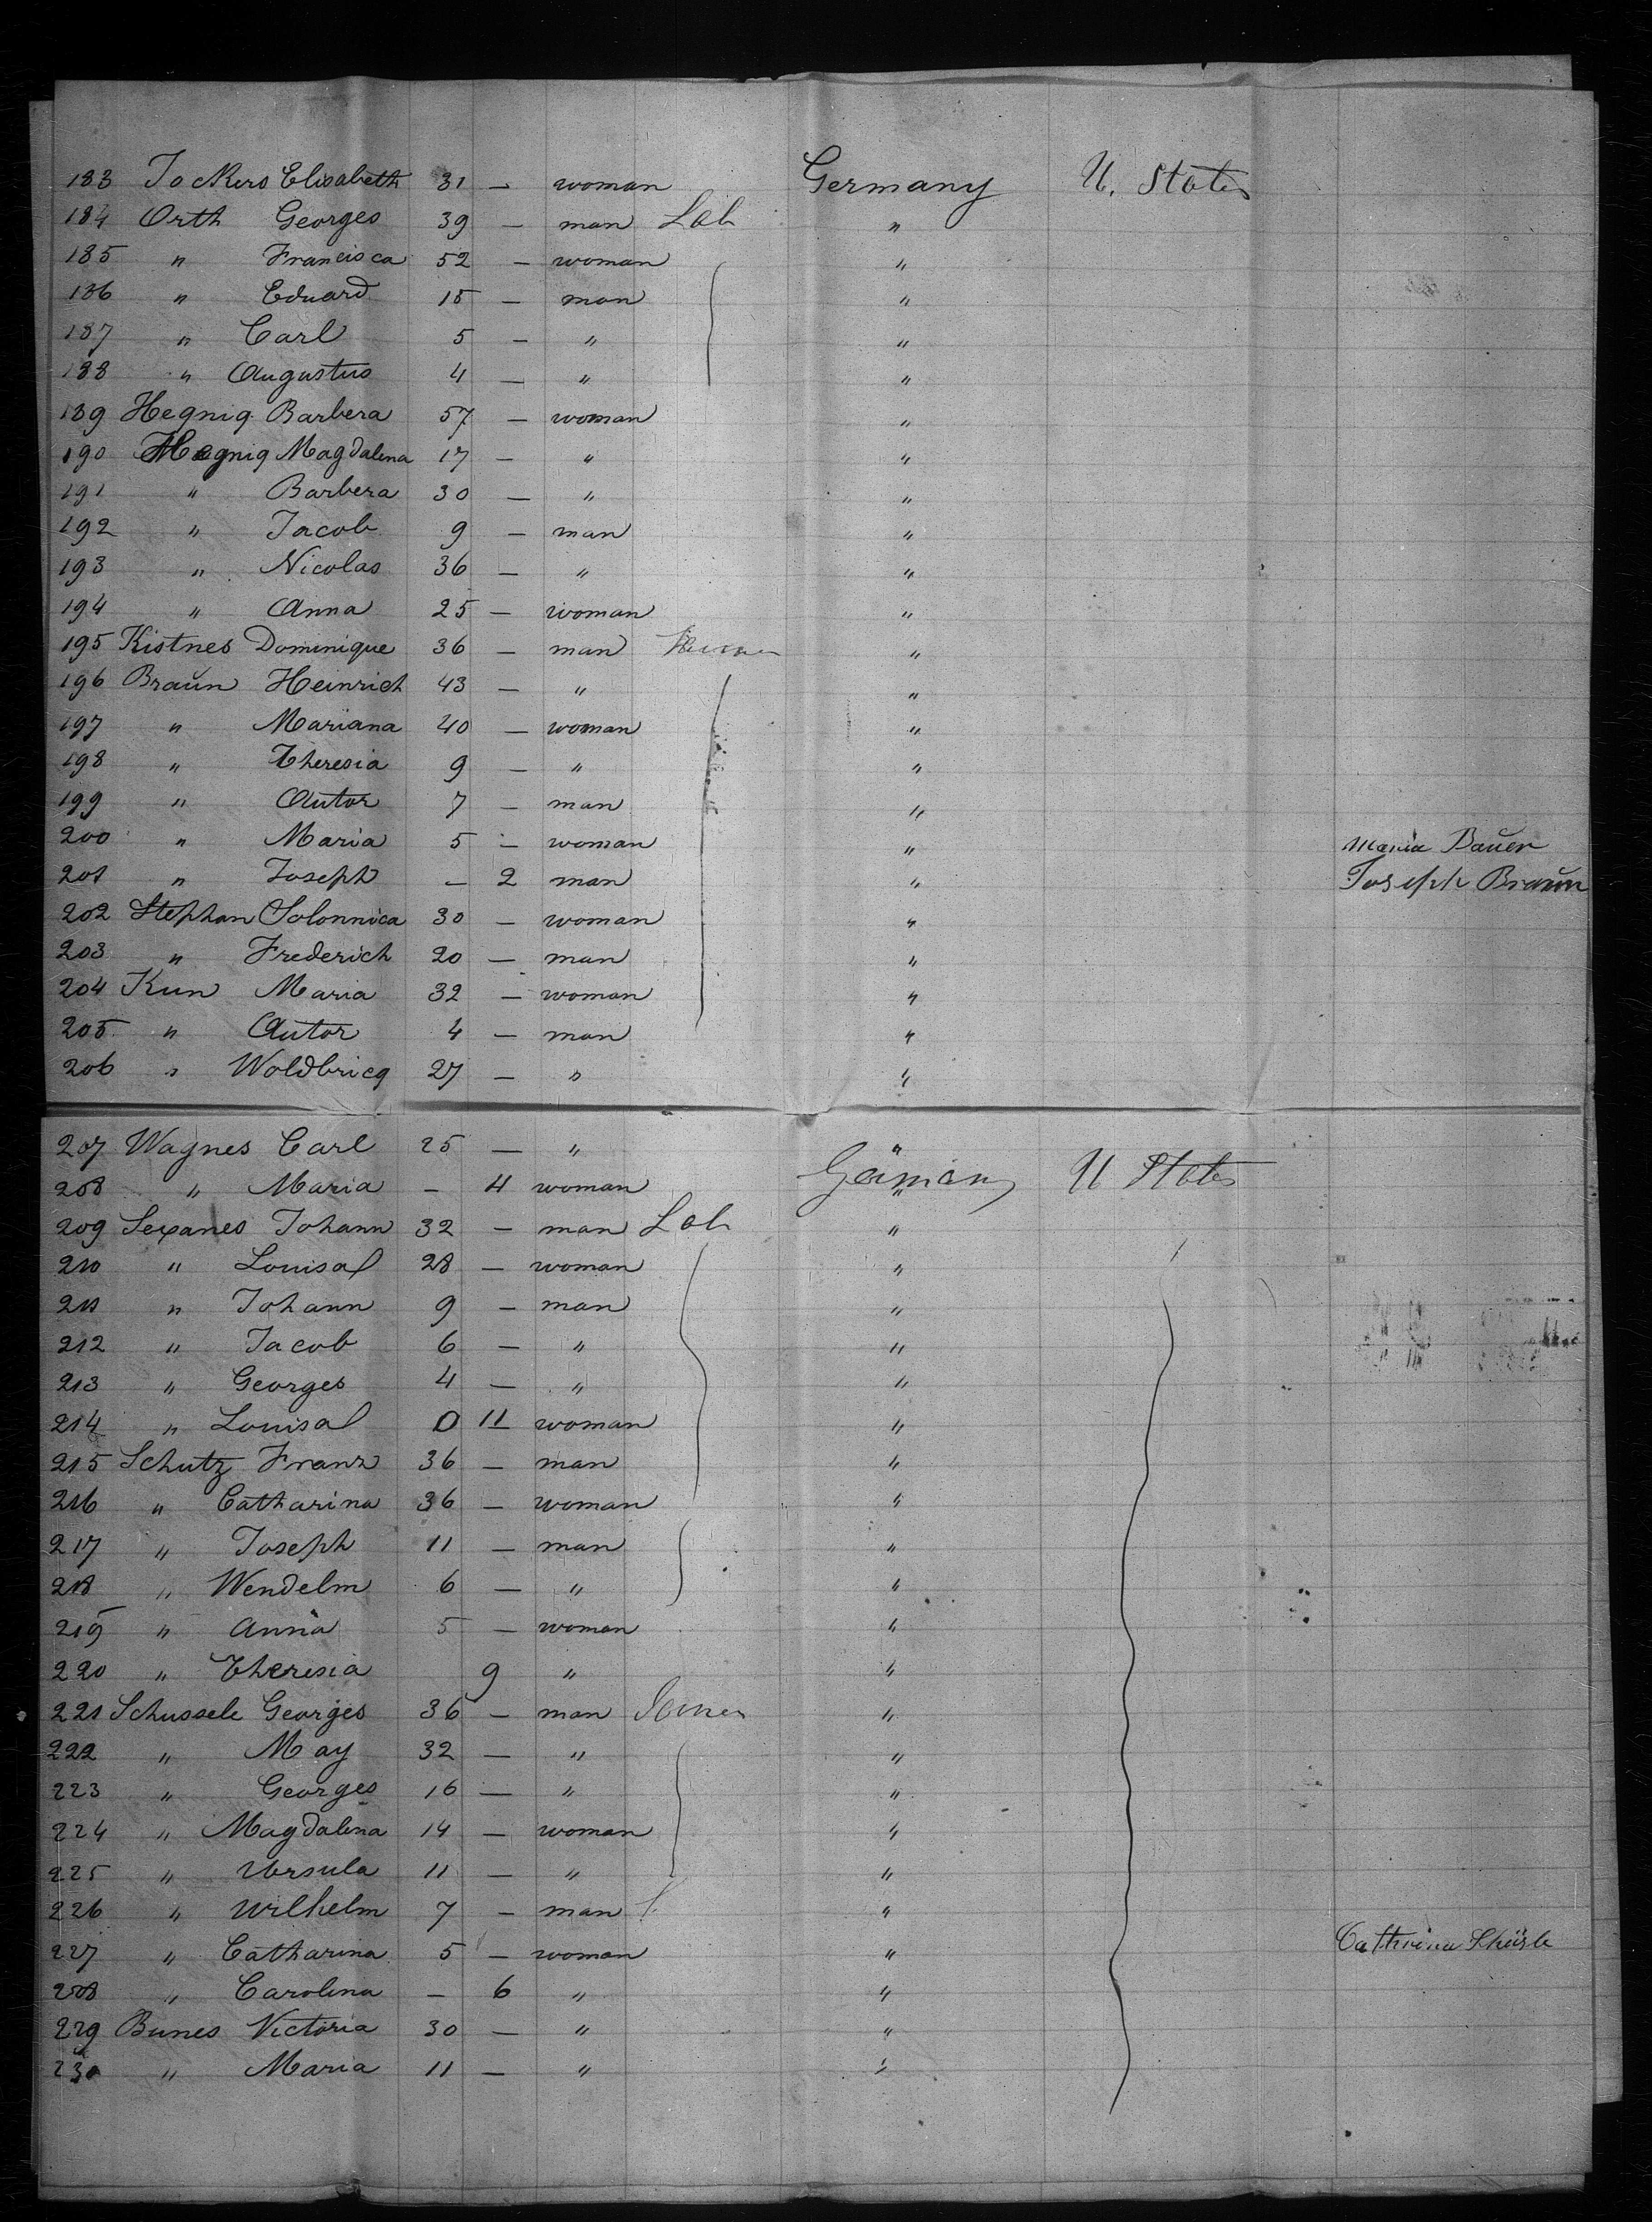 183 Jockers Elisabeth 31 — woman Germany U. States
184 Orth Georges 39 — man Lab "
185 " Francisca 52 — woman "
186 " Eduard 15 — man "
187 " Carl 5 — " "
188 " Augustus 4 — " "
189 Hegnig Barbera 57 — woman "
190 Hegnig Magdalena 17 — " "
191 " Barbera 30 — " "
192 " Jacob 9 — man "
193 " Nicolas 36 — " "
194 " Anna 25 — woman "
195 Kistnes Dominique 36 — man "
196 Braun Heinrich 43 — " "
197 " Mariana 40 — woman "
198 " Theresia 9 — " "
199 " Autor 7 — man "
200 " Maria 5 — woman " Maria Bauer
201 " Joseph — 2 man " Joseph Braun
202 Stephan Solonnica 30 — woman "
203 " Frederich 20 — man "
204 Kun Maria 32 — woman "
205 " Autor 4 — man "
206 " Woldbricq 27 — " "
207 Wagnes Carl 25 — " "
208 " Maria — 4 woman " German U States
209 Sexanes Johann 32 — man Lab "
210 " Louisa 28 — woman "
211 " Johann 9 — man "
212 " Jacob 6 — " "
213 " Georges 4 — " "
214 " Louisa 0 11 woman "
215 Schutz Franz 36 — man "
216 " Catharina 36 — woman "
217 " Joseph 11 — man "
218 " Wendelm 6 — " "
219 " Anna 5 — woman "
220 " Theresia 9 " "
221 Schussele Georges 36 — man "
222 " May 32 — " "
223 " Georges 16 — " "
224 " Magdalena 14 — woman "
225 " Ursula 11 — " "
226 " Wilhelm 7 — man "
227 " Catharina 5 — woman " Cathrina
228 " Carolina — 6 " "
229 Bunes Victoria 30 — " "
230 " Maria 11 — " "